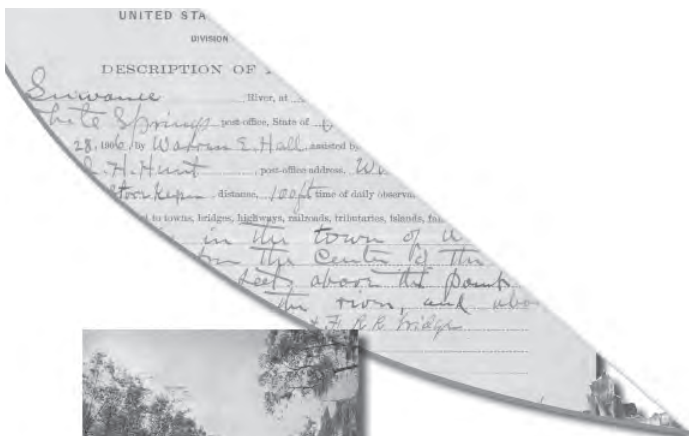 UNITED STA
DIVISION
DESCRIPTION OF
Suwanee River, at
hite Springs post-office, State of
28, 1906, by Warren E. Hall, assisted by
H. Hunt, post-office address, W
Storekeeper distance, 100 ft time of daily observa
d to towns, bridges, highways, railroads, tributaries, islands, fal
in the town of W
from the center of the
feet above the
the river, and abo
R R bridge